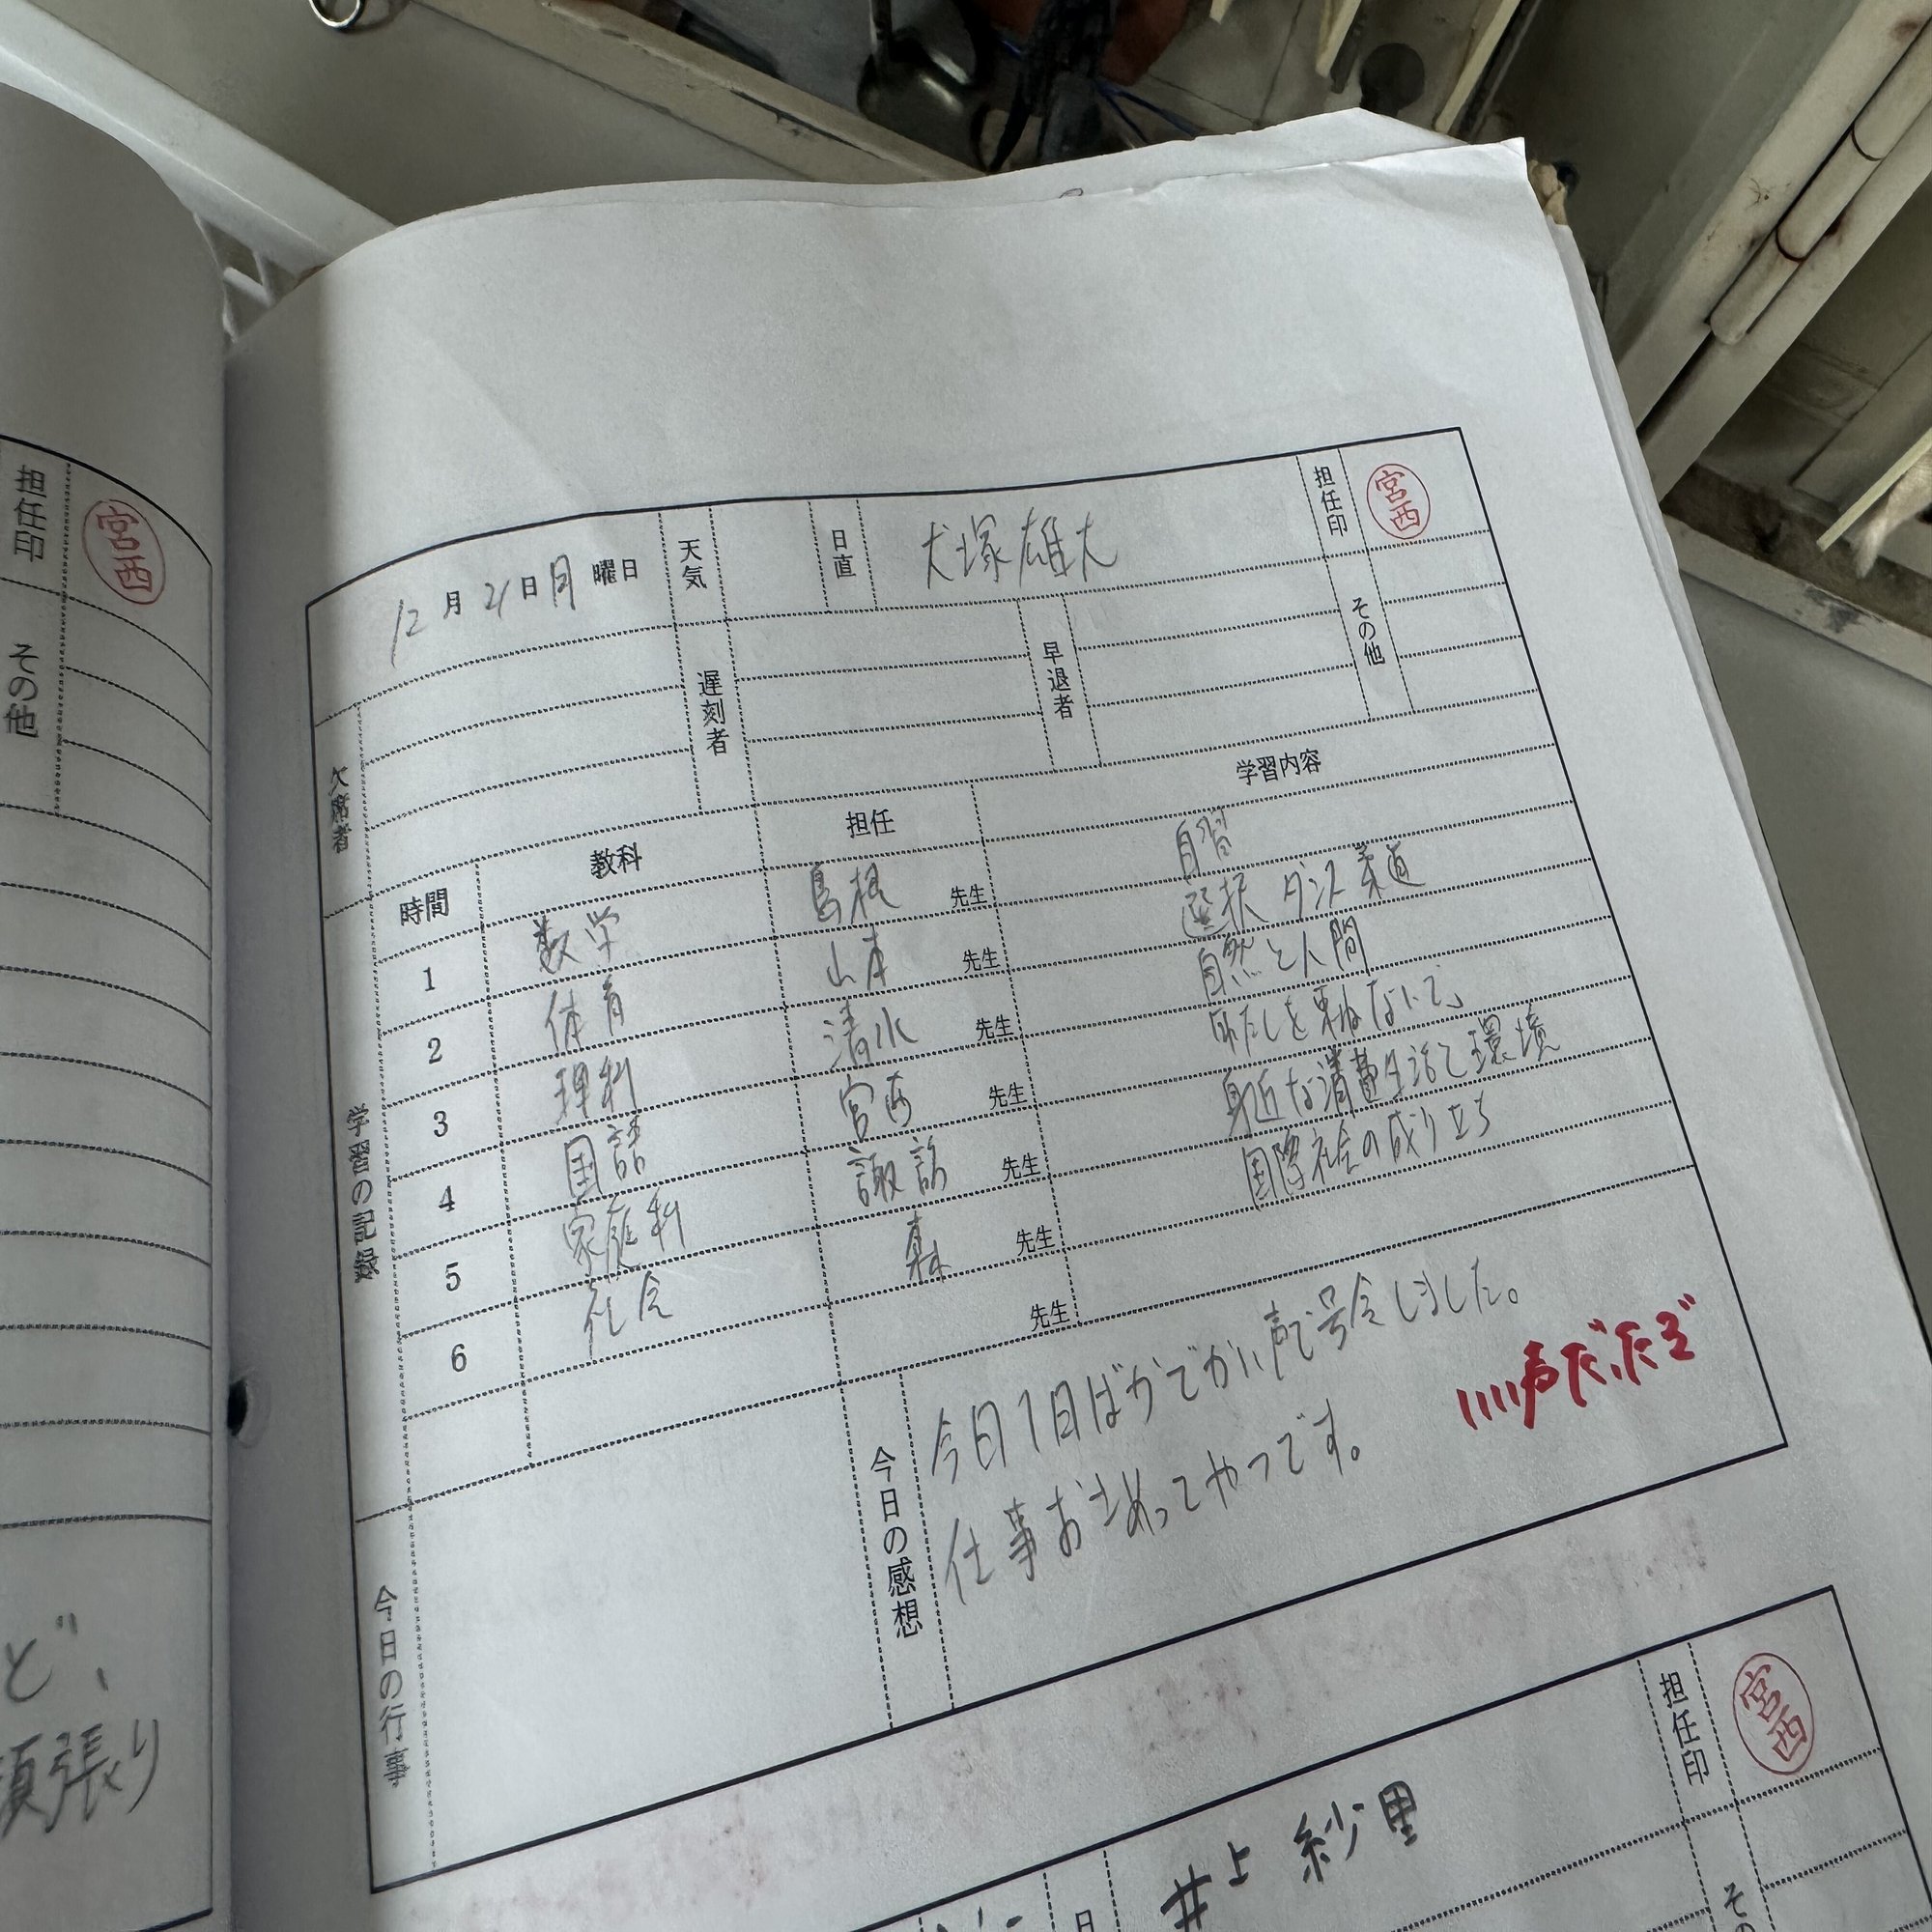 担任印
宮西
その他
ど、
頑張り
12月21日月曜日 天気 日直 犬塚雄大 担任印 宮西
欠席者 遅刻者 早退者 その他
学習の記録
時間 教科 担任 学習内容
1 数学 島根先生 自習
2 体育 山本先生 選択 ダンス 柔道
3 理科 清水先生 自然と人間
4 国語 宮西先生
5 家庭科 諏訪先生 身近な消費生活と環境
6 社会 森先生 国際社会の成り立ち
先生
今日の行事
今日の感想
今日1日ばかでかい声で号令しました。
仕事おさめってやつです。
いい声だったぞ
日 井上 紗里 担任印 宮西
そ